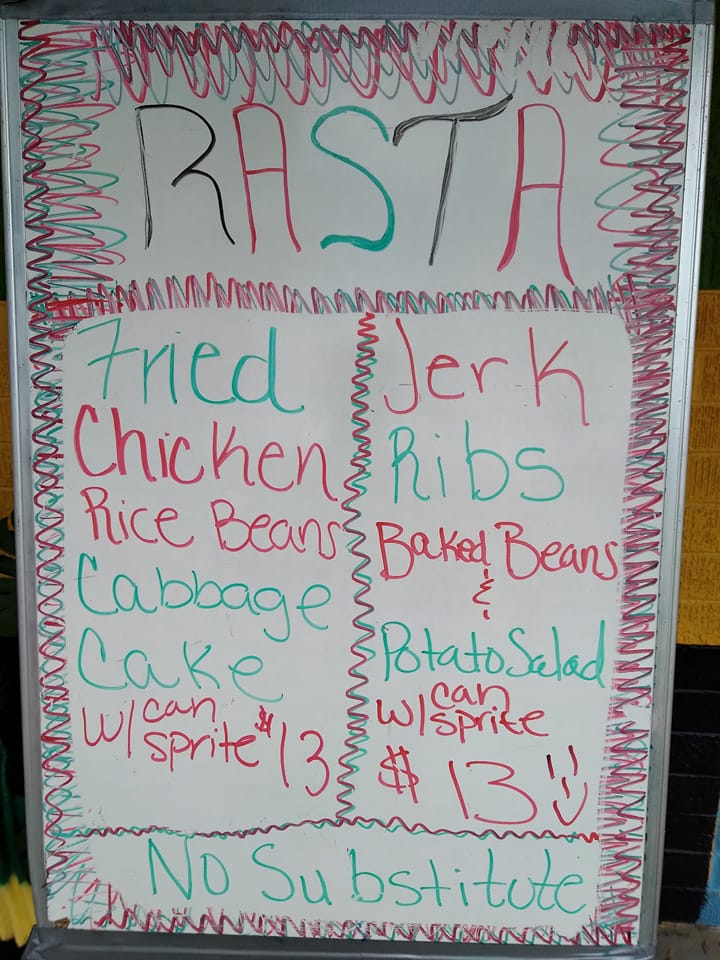 RASTA
Fried
Chicken
Rice Beans
Cabbage
Cake
W/ can
sprite $13
Jerk
Ribs
Baked Beans
&
Potato Salad
W/ can
sprite
$13
No Substitute